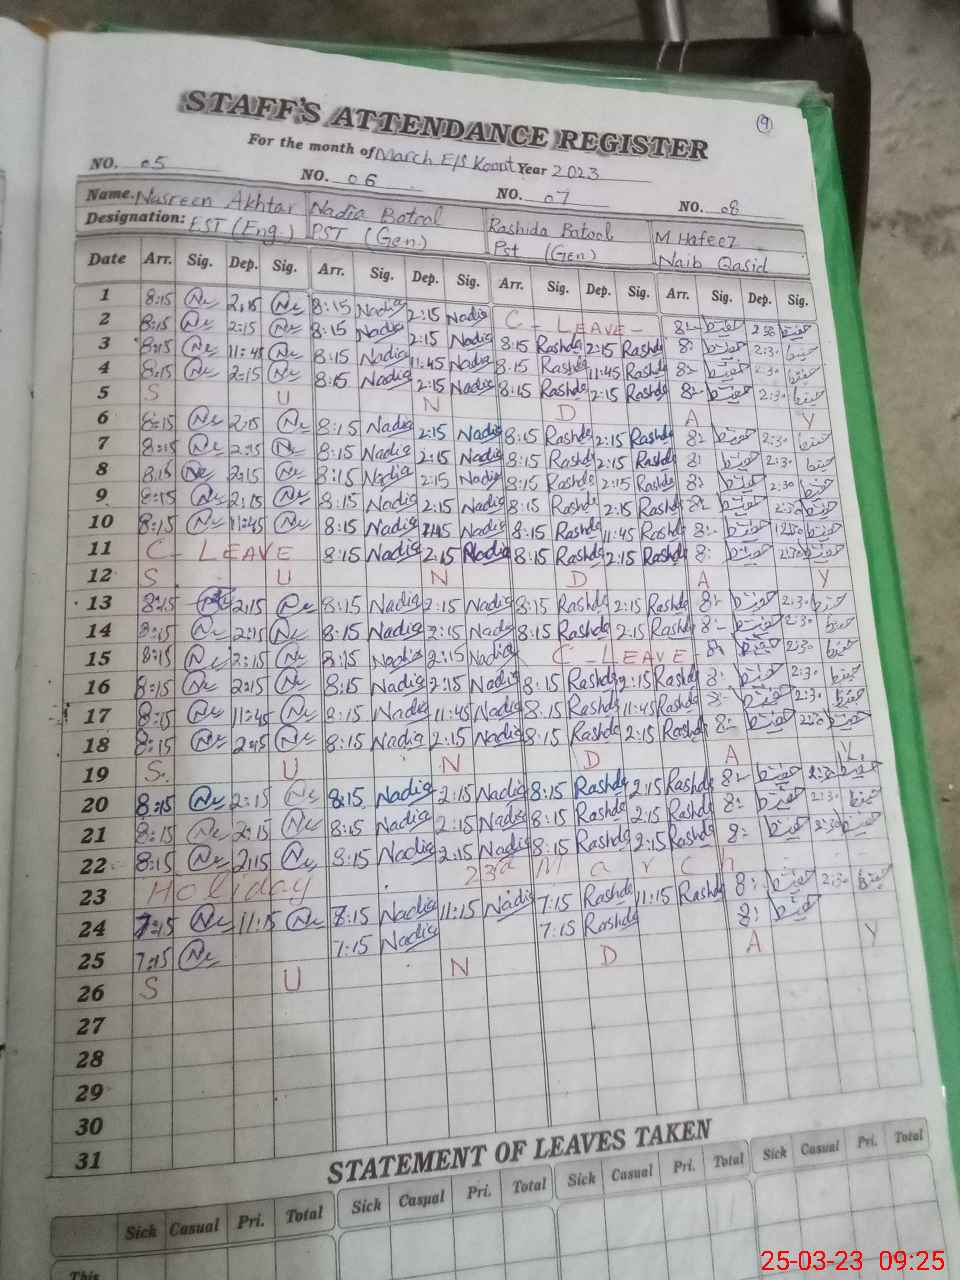 (9)
STAFF'S ATTENDANCE REGISTER
For the month of March E/S Koont Year 2023
NO. 05 NO. 06 NO. 07 NO. 08
Name. Nasreen Akhtar Nadia Batool Rashida Batool M Hafeez
Designation: EST (Eng.) PST (Gen) Pst (Gen) Naib Qasid
Date Arr. Sig. Dep. Sig. Arr. Sig. Dep. Sig. Arr. Sig. Dep. Sig. Arr. Sig. Dep. Sig.
1 8:15 2:15 8:15 Nadia 2:15 Nadia C - LEAVE - 8:- حفیظ 2:30 حفیظ
2 8:15 2:15 8:15 Nadia 2:15 Nadia 8:15 Rashda 2:15 Rashda 8:- حفیظ 2:30 حفیظ
3 8:15 11:45 8:15 Nadia 11:45 Nadia 8:15 Rashda 11:45 Rashda 8:- حفیظ 2:30 حفیظ
4 8:15 2:15 8:15 Nadia 2:15 Nadia 8:15 Rashda 2:15 Rashda 8:- حفیظ 2:30 حفیظ
5 S U N D A Y
6 8:15 2:15 8:15 Nadia 2:15 Nadia 8:15 Rashda 2:15 Rashda 8:- حفیظ 2:30 حفیظ
7 8:15 2:15 8:15 Nadia 2:15 Nadia 8:15 Rashda 2:15 Rashda 8: حفیظ 2:30 حفیظ
8 8:15 2:15 8:15 Nadia 2:15 Nadia 8:15 Rashda 2:15 Rashda 8: حفیظ 2:30 حفیظ
9 8:15 2:15 8:15 Nadia 2:15 Nadia 8:15 Rashda 2:15 Rashda 8:- حفیظ 2:30 حفیظ
10 8:15 11:45 8:15 Nadia 11:45 Nadia 8:15 Rashda 11:45 Rashda 8:- حفیظ حفیظ
11 C - LEAVE 8:15 Nadia 2:15 Nadia 8:15 Rashda 2:15 Rashda 8: حفیظ 2:30 حفیظ
12 S U N D A Y
13 8:15 2:15 8:15 Nadia 2:15 Nadia 8:15 Rashda 2:15 Rashda 8:- حفیظ 2:30 حفیظ
14 8:15 2:15 8:15 Nadia 2:15 Nadia 8:15 Rashda 2:15 Rashda 8:- حفیظ 2:30 حفیظ
15 8:15 2:15 8:15 Nadia 2:15 Nadia C - LEAVE - 8: حفیظ 2:30 حفیظ
16 8:15 2:15 8:15 Nadia 2:15 Nadia 8:15 Rashda 2:15 Rashda 8: حفیظ 2:30 حفیظ
17 8:15 11:45 8:15 Nadia 11:45 Nadia 8:15 Rashda 11:45 Rashda 8:- حفیظ 2:30 حفیظ
18 8:15 2:15 8:15 Nadia 2:15 Nadia 8:15 Rashda 2:15 Rashda 8:- حفیظ حفیظ
19 S U N D A Y
20 8:15 2:15 8:15 Nadia 2:15 Nadia 8:15 Rashda 2:15 Rashda 8:- حفیظ 2:30 حفیظ
21 8:15 2:15 8:15 Nadia 2:15 Nadia 8:15 Rashda 2:15 Rashda 8: حفیظ 2:30 حفیظ
22 8:15 2:15 8:15 Nadia 2:15 Nadia 8:15 Rashda 2:15 Rashda 8: حفیظ 2:30 حفیظ
23 Holiday 23rd March
24 7:15 11:15 7:15 Nadia 11:15 Nadia 7:15 Rashda 11:15 Rashda 8: حفیظ 2:30 حفیظ
25 7:15 7:15 Nadia 7:15 Rashda 8: حفیظ
26 S U N D A Y
27
28
29
30
31
STATEMENT OF LEAVES TAKEN
Sick Casual Pri. Total Sick Casual Pri. Total Sick Casual Pri. Total Sick Casual Pri. Total
This
25-03-23 09:25